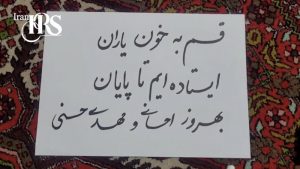 Iran HRS
قسم به خون یاران
ایستاده ایم تا پایان
بهروز احسانی و مهدی حسنی